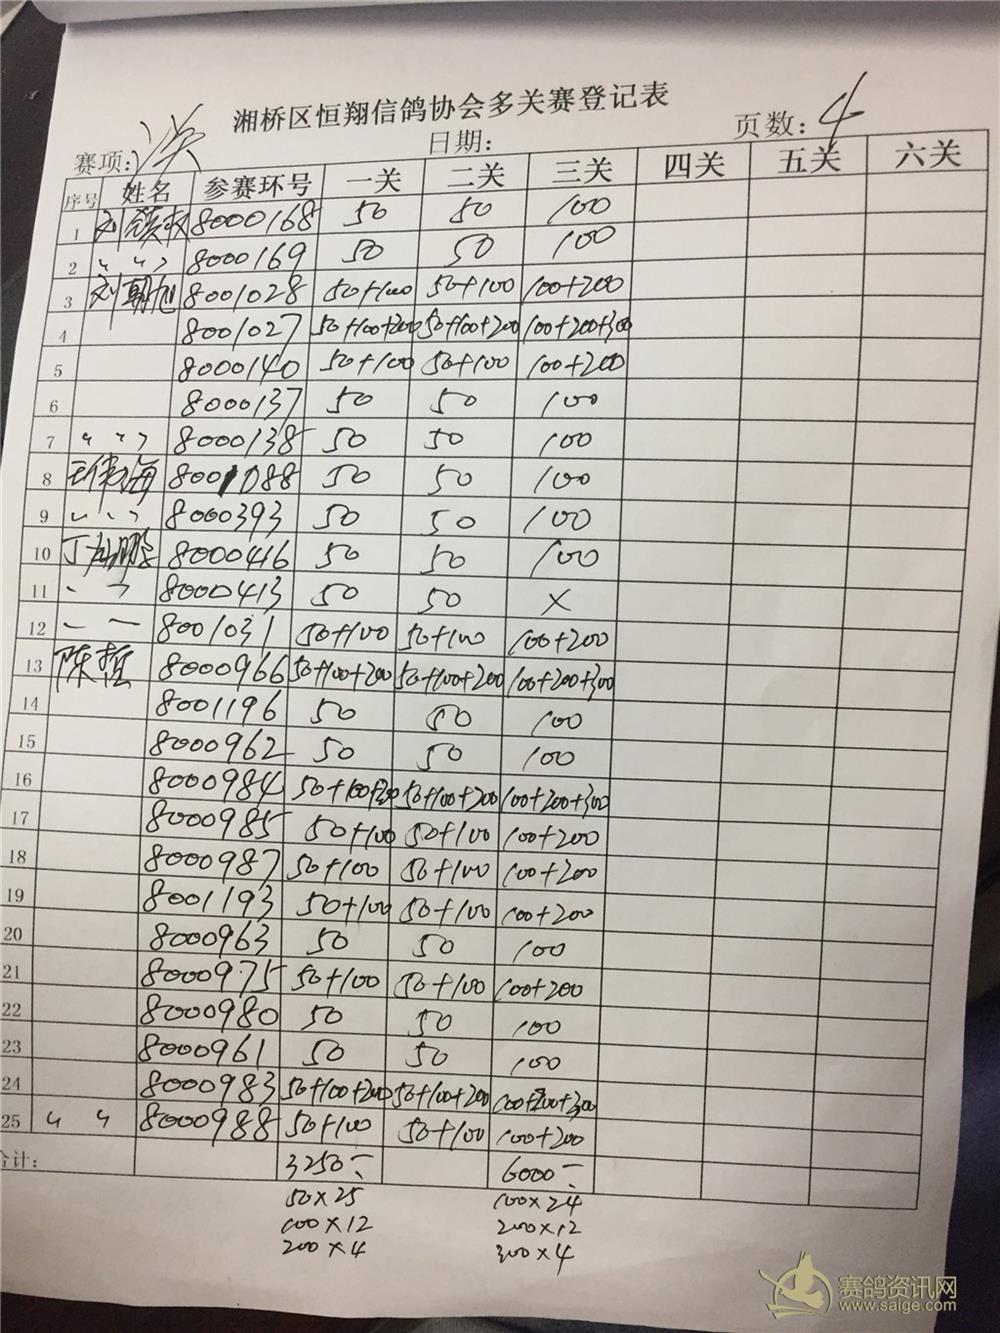 湘桥区恒翔信鸽协会多关赛登记表
赛项: 决 日期: 页数: 4
序号 姓名 参赛环号 一关 二关 三关 四关 五关 六关
1 刘 8000168 50 50 100
2 〃 8000169 50 50 100
3 刘朝旭 8001028 50+100 50+100 100+200
4 8001027 50+100+200 50+100+200 100+200+300
5 8000140 50+100 50+100 100+200
6 8000137 50 50 100
7 〃 8000138 50 50 100
8 王伟海 8001088 50 50 100
9 〃 8000393 50 50 100
10 丁 鹏 8000416 50 50 100
11 〃 8000413 50 50 ×
12 〃 8001031 50+100 50+100 100+200
13 陈哲 8000966 50+100+200 50+100+200 100+200+300
14 8001196 50 50 100
15 8000962 50 50 100
16 8000984 50+100+200 50+100+200 100+200+300
17 8000985 50+100 50+100 100+200
18 8000987 50+100 50+100 100+200
19 8001193 50+100 50+100 100+200
20 8000963 50 50 100
21 8000975 50+100 50+100 100+200
22 8000980 50 50 100
23 8000961 50 50 100
24 8000983 50+100+200 50+100+200 100+200+300
25 〃 8000988 50+100 50+100 100+200
合计: 3250 6000
50×25 100×24
100×12 200×12
200×4 300×4
赛鸽资讯网
www.saige.com